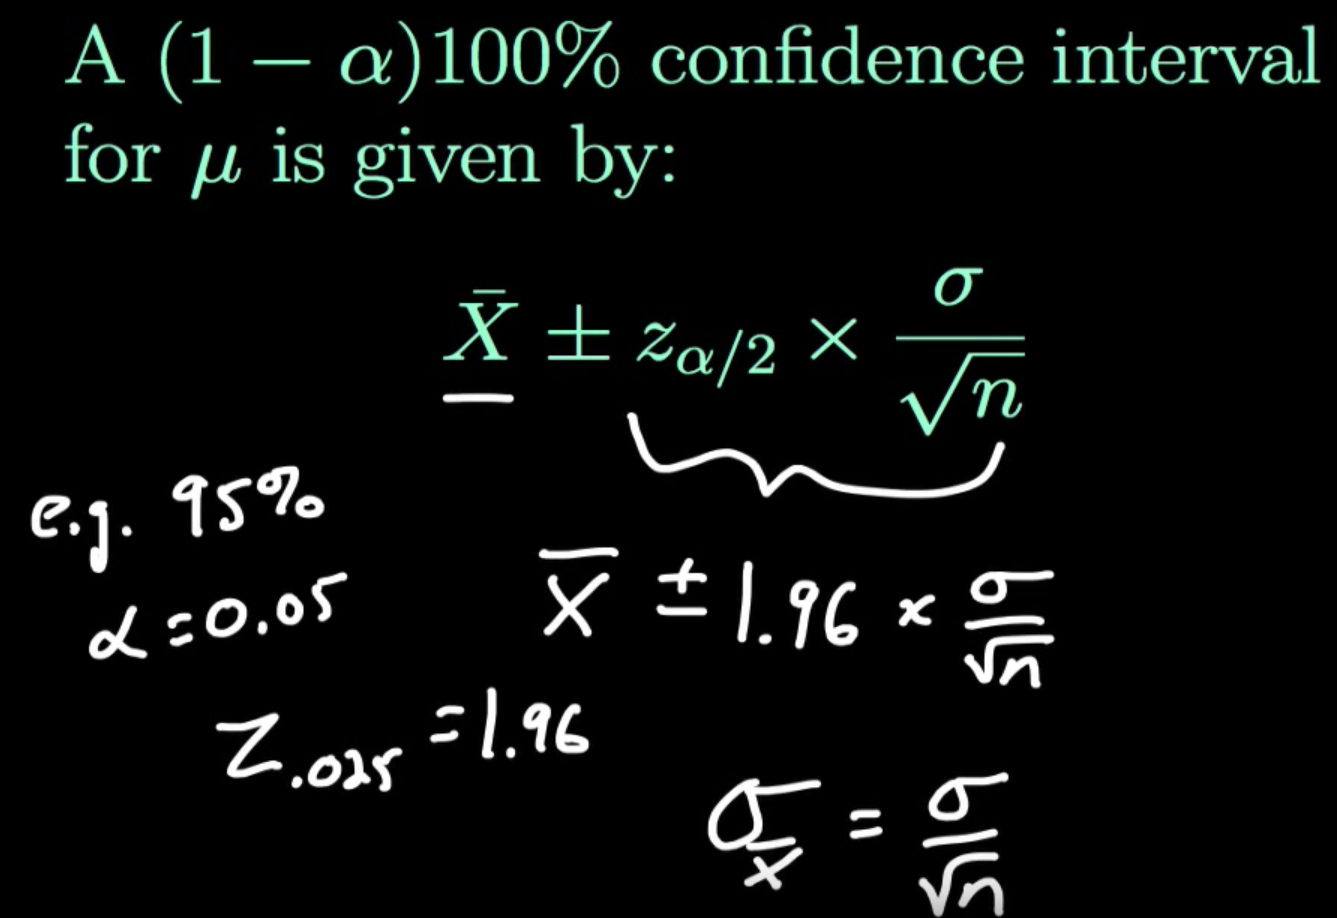 A (1 − α)100% confidence interval
for μ is given by:
X̄ ± z_{α/2} × σ/√n
e.g. 95%
α=0.05
X̄ ± 1.96 × σ/√n
Z.025 =1.96
σ_X̄ = σ/√n